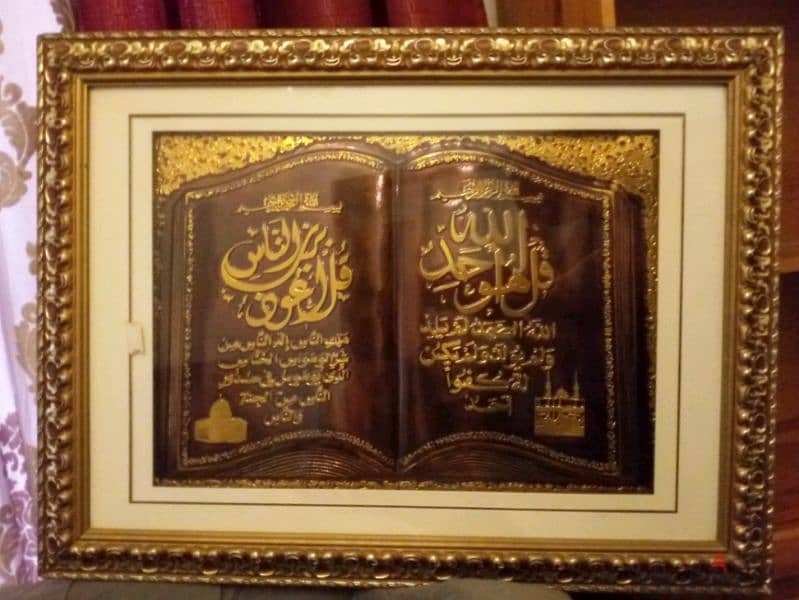 بسم الله الرحمن الرحيم
قل هو الله أحد
الله الصمد لم يلد
ولم يولد ولم يكن
له كفوا
أحد
بسم الله الرحمن الرحيم
قل أعوذ برب الناس
ملك الناس إله الناس من
شر الوسواس الخناس
الذي يوسوس في صدور
الناس من الجنة
والناس